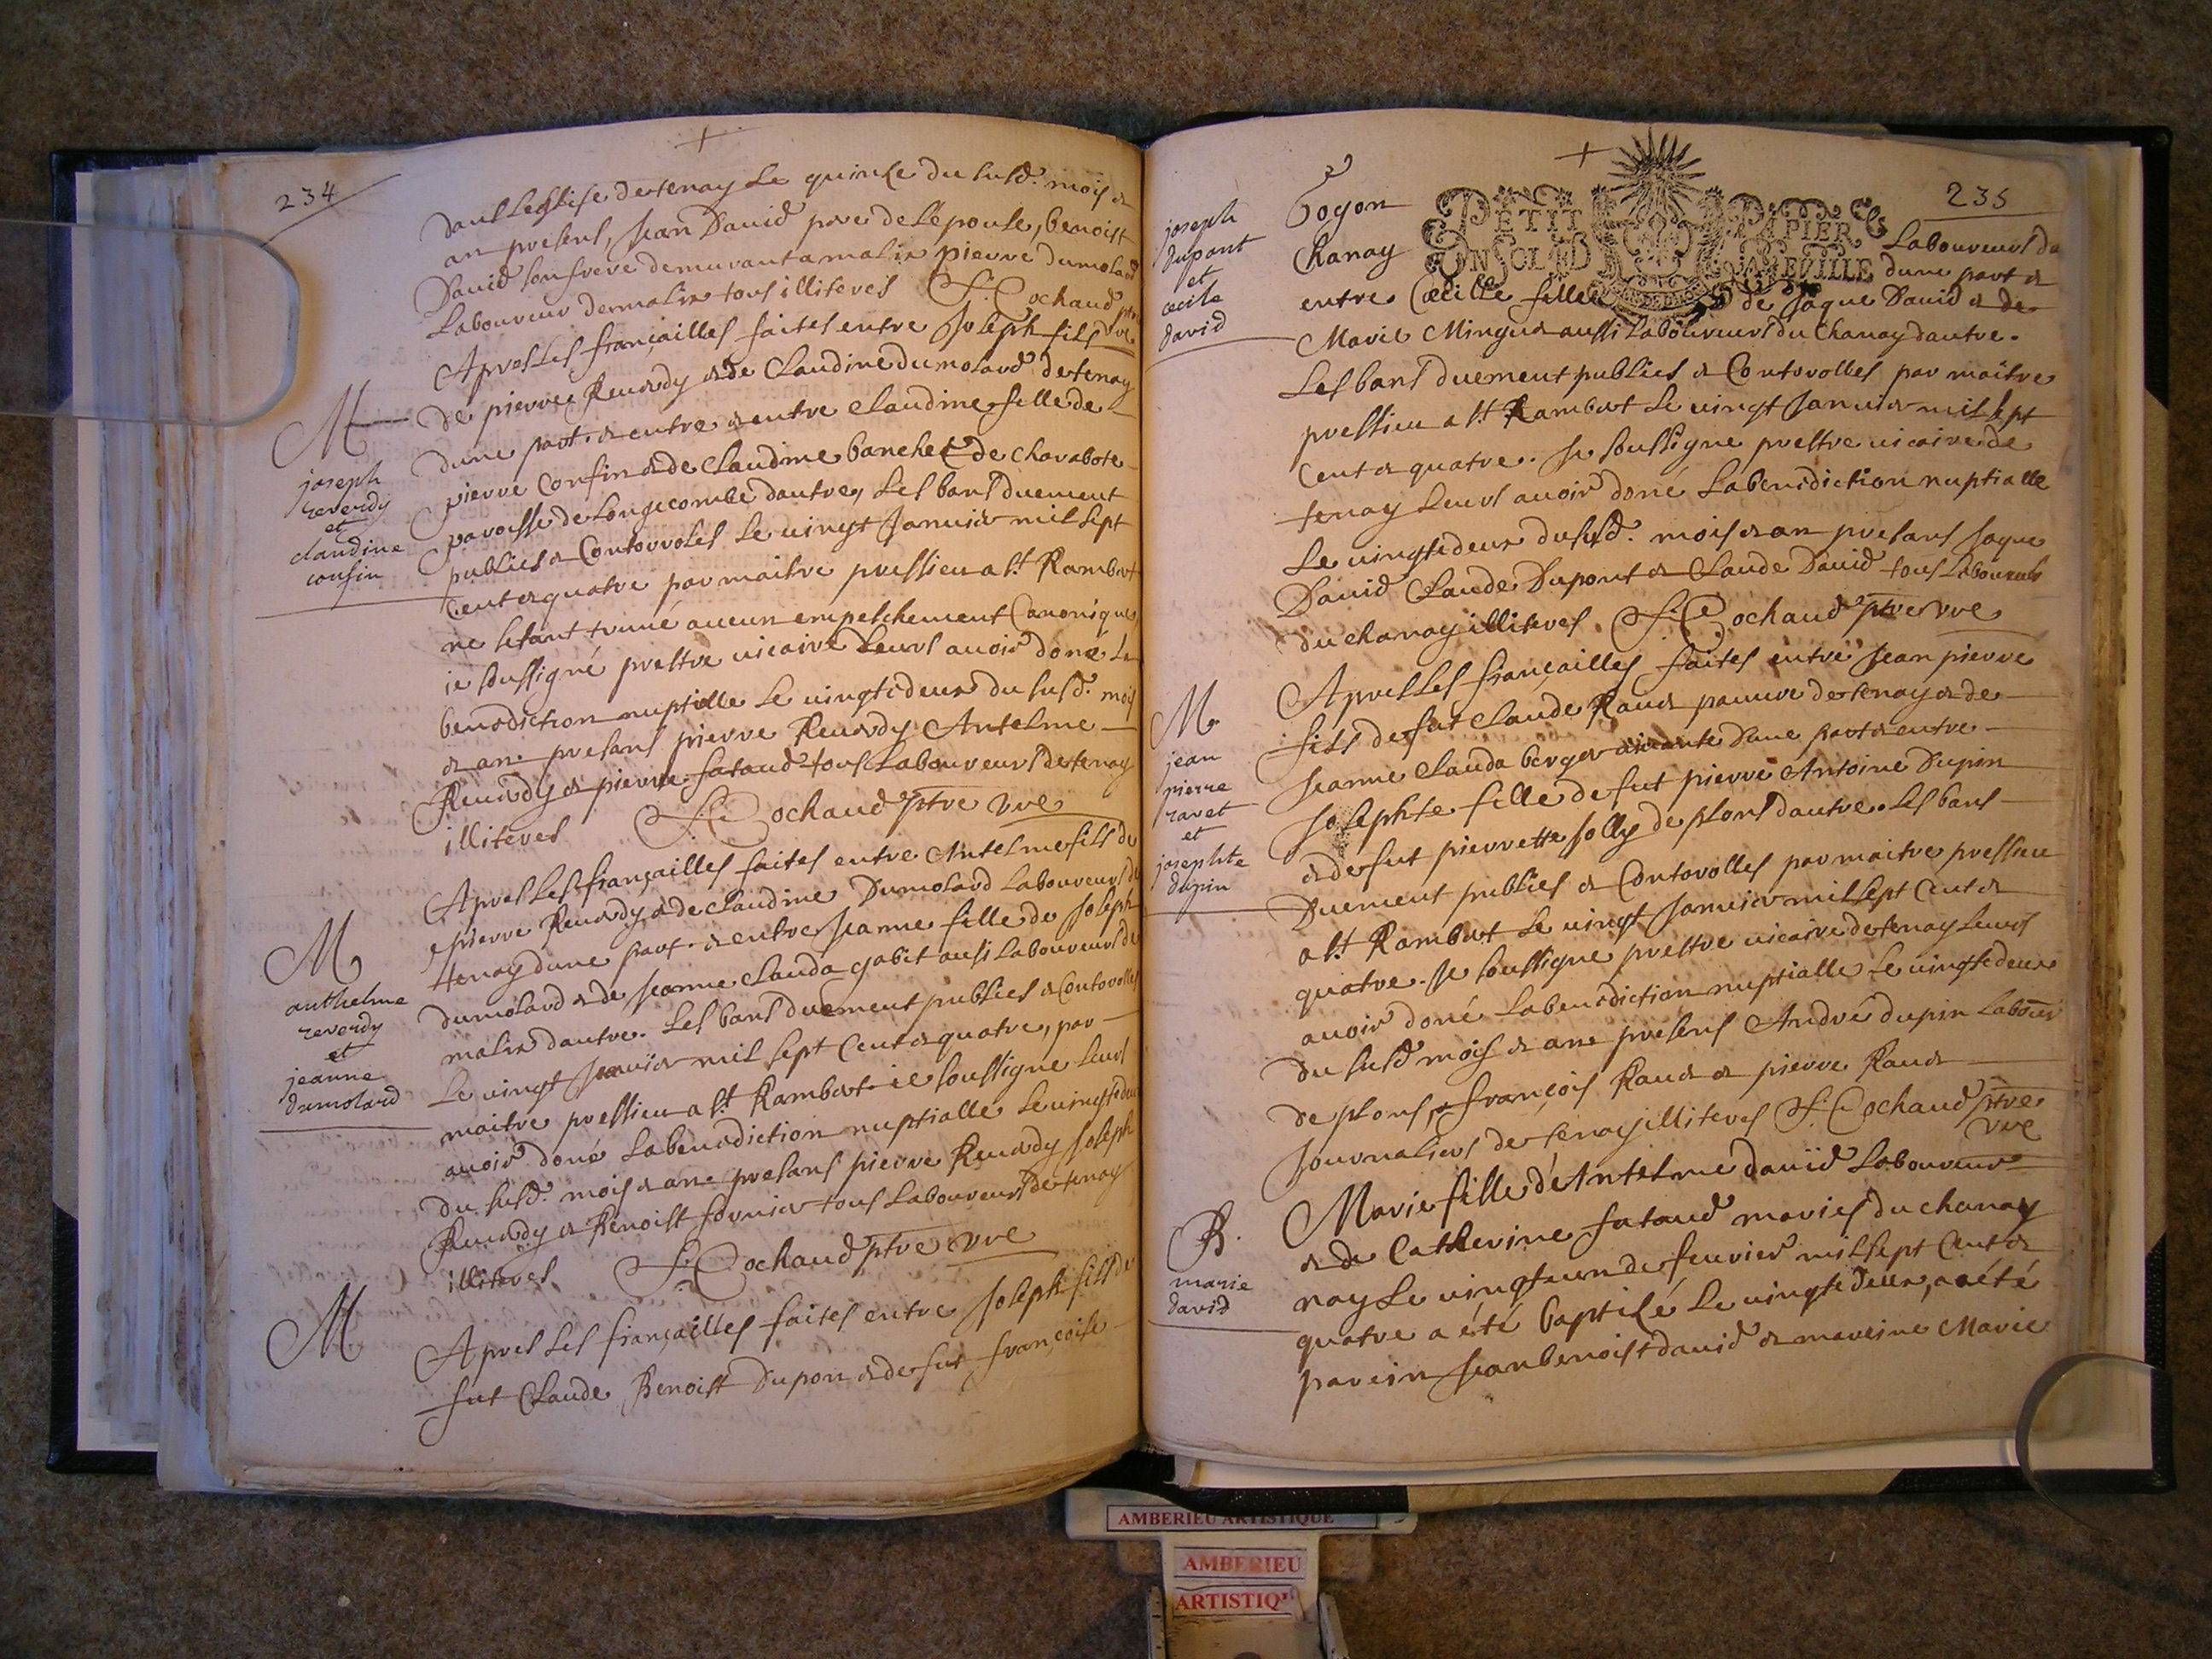 234
dans leglise de tenay le quinze du susd. mois &
an presens, jean David pere de lepouse, benoist
David son frere demurant a malix pierre dumolard
Laboureur de malix tous illiteres F. Cochaud ptre
vre
M
joseph
reverdy
et
claudine
confin
Apres les françailles faites entre Joseph fils
de pierre Reverdy & de Claudine dumolard de tenay
dune part & entre & entre claudine fille de
pierre Confin & de Claudine banchet de charabote
paroisse de Longecombe dautre, les bans duement
publies & Contorroles le vingt Janvier mil sept
Cent & quatre par maitre pressieu a st. Rambert
ne setant trouvé aucun empeschement Canonique
ie soussigné prestre vicaire leurs avoir doné la
benediction nuptialle le vingtideux du susd. mois
& an presans pierre Reverdy Antelme
Reverdy & pierre fataud tous Laboureurs de tenay
illiteres F. Cochaud ptre vre
M
anthelme
reverdy
et
jeanne
dumolard
Apres les françailles faites entre Antelme fils de
pierre Reverdy & de claudine Dumolard Laboureurs de
tenay dune part & entre jeanne fille de Joseph
dumolard & de jeanne Clauda gabet ausi Laboureurs de
malix dautre. Les bans duement publies & Contorolles
Le vingt janvier mil sept Cent & quatre, par
maitre pressieu a st. Rambert ie soussigne leurs
avoir doné La benediction nuptialle le vingtideux
du susd. mois & an presans pierre Reverdy Joseph
Reverdy & Benoist fornier tous Laboureurs de tenay
illiteres F. Cochaud ptre vre
M
Apres les françailles faites entre Joseph fils de
fut Claude Benoist Dupon & de fut françoise
235
PETIT PAPIER
UN SOL LA FEUILLE
joseph
dupont
et
cecile
david
Bogon Laboureurs du
Chanay dune part &
entre Cecille fille de Jaque David & de
Marie Minguet aussi Laboureurs du Chanay dautre.
Les bans duement publies & Contorolles par maitre
pressieu a st. Rambert le vingt Janvier mil sept
Cent & quatre. Je soussigne prestre vicaire de
tenay leurs avoir doné La benediction nuptialle
Le vingtideux du susd. mois & an presans Jaque
David Claude Dupont & Claude David tous Laboureurs
du chanay illiteres F. Cochaud ptre vre
M
jean
pierre
ravet
et
josephte
dupin
Apres les françailles faites entre Jean pierre
fils de fut Claude Ravet pauvre de tenay & de
jeanne Clauda berger vivante dune part & entre
Josephte fille de fut pierre Antoine Dupin
& de fut pierrette jolly de plons dautre. Les bans
Duement publies & Contorolles par maitre pressieu
a st. Rambert le vingt Janvier mil sept Cent &
quatre. Je soussigne prestre vicaire de tenay leurs
avoir doné La benediction nuptialle le vingtideux
du susd mois & an presens André dupin Labour
de plons, françois Ravet & pierre Ravet
Journaliers de tenay illiteres F. Cochaud ptre
vre
B.
marie
david
Marie fille d'Antelme david Laboureur
& de Catherine fataud maries du chanay
nay le vingt un de feuvrier mil sept Cent &
quatre a été baptisé le vingtideux, a été
parein jean benoist david & mareine Marie
AMBERIEU ARTISTIQUE
AMBERIEU
ARTISTIQ